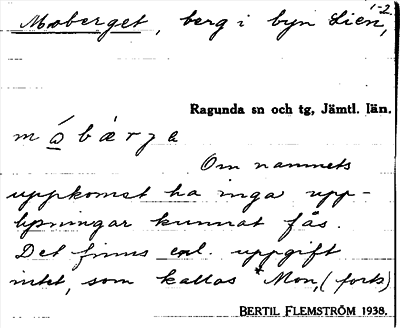 1-2.
Moberget, berg i byn Lien,
Ragunda sn och tg, Jämtl. län.
m å b æ r j a
Om namnets
uppkomst ha inga upp-
lysningar kunnat fås.
Det finns enl. uppgift
intet, som kallas *Mon, (forts)
BERTIL FLEMSTRÖM 1938.